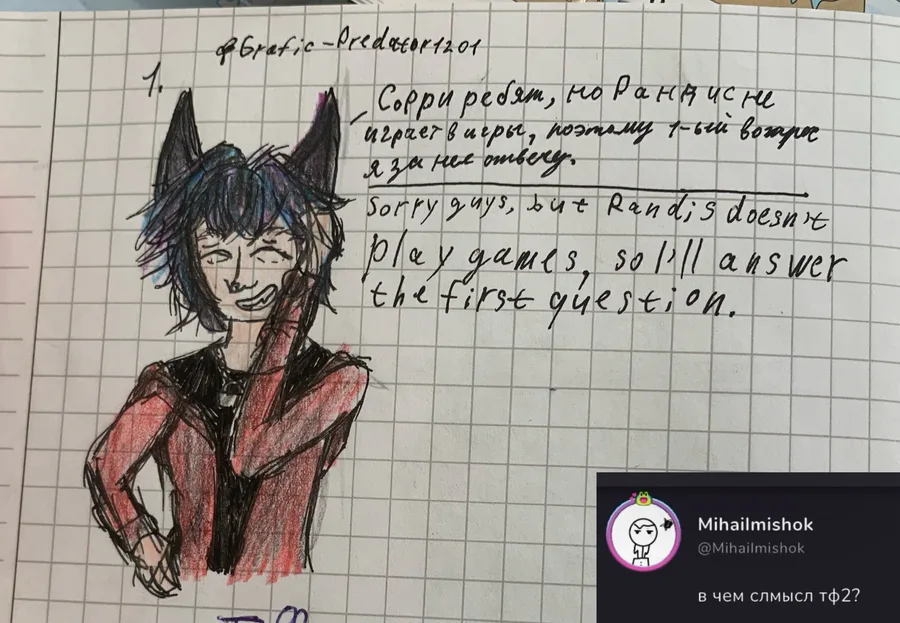 @Grafic-Predator1201
1.
Сорри ребят, но Рандис не
играет в игры, поэтому 1-ый вопрос
я за неё отвечу.
Sorry guys, but Randis doesn't
play games, so I'll answer
the first question.
Mihailmishok
@Mihailmishok
в чем слмысл тф2?